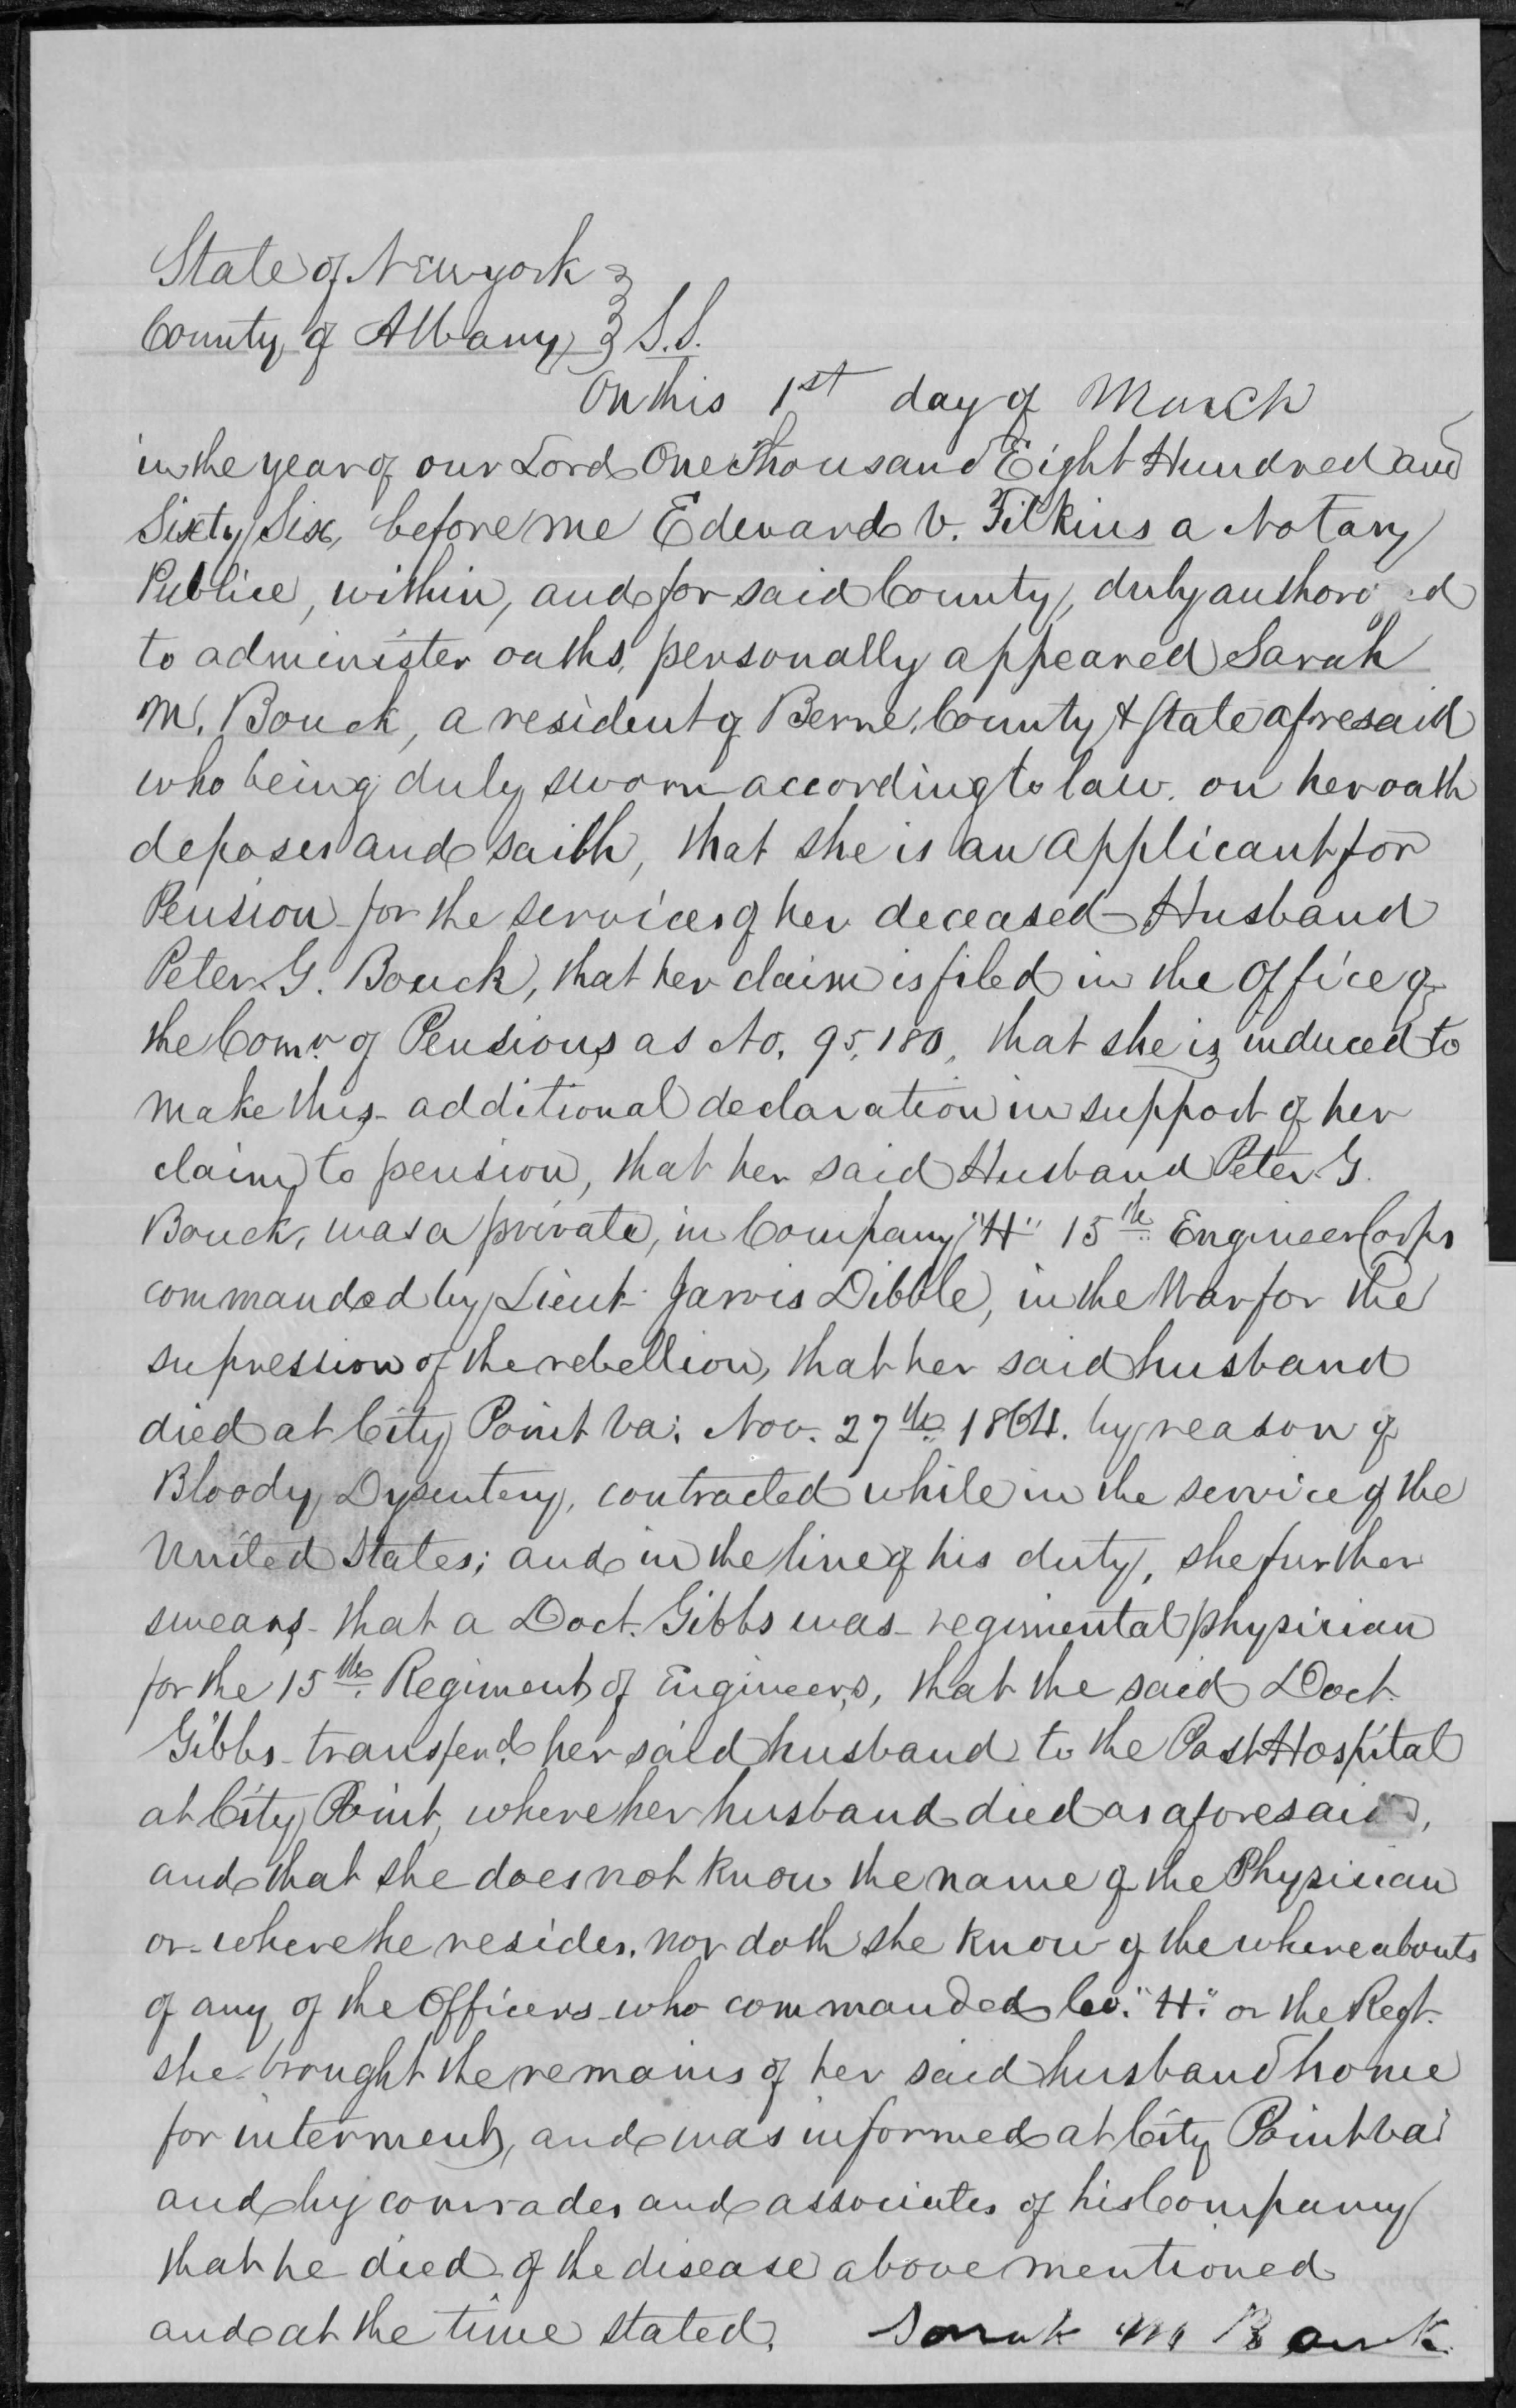 State of New york }
County of Albany } S.S.
On this 1st day of March
in the year of our Lord One Thousand Eight Hundred and
Sixty Six, before me Edward V. Filkins a Notary
Public, within, and for said County, duly authori ed
to administer oaths, personally appeared Sarah
M. Bouck, a resident of Berne, County & State aforesaid
who being duly sworn according to law, on her oath
deposes and saith, that she is an applicant for
Pension for the services of her deceased Husband
Peter G. Bouck, that her claim is filed in the Office of
the Comr. of Pensions as No. 95,180, that she is induced to
make this additional declaration in support of her
claim to pension, that her said Husband Peter G.
Bouck, was a private, in Company "H" 15th Engineer Corps
commanded by Lieut. Jarvis Dibble, in the War for the
supression of the rebellion, that her said husband
died at City Point Va; Nov. 27th 1864. by reason of
Bloody Dysentery, contracted while in the service of the
United States; and in the line of his duty, she further
swears that a Doct. Gibbs was regimental physician
for the 15th Regiment of Engineers, that the said Doct.
Gibbs transferd her said husband to the Post Hospital
at City Point, where her husband died as aforesaid,
and that she does not know the name of the Physician
or where he resides, nor doth she know of the whereabouts
of any of the Officers who commanded Co. "H." or the Regt.
she brought the remains of her said husband home
for interment, and was informed at City Point Va;
and by comrades and associates of his Company
that he died of the disease above mentioned
and at the time stated. Sarah M Bouck.